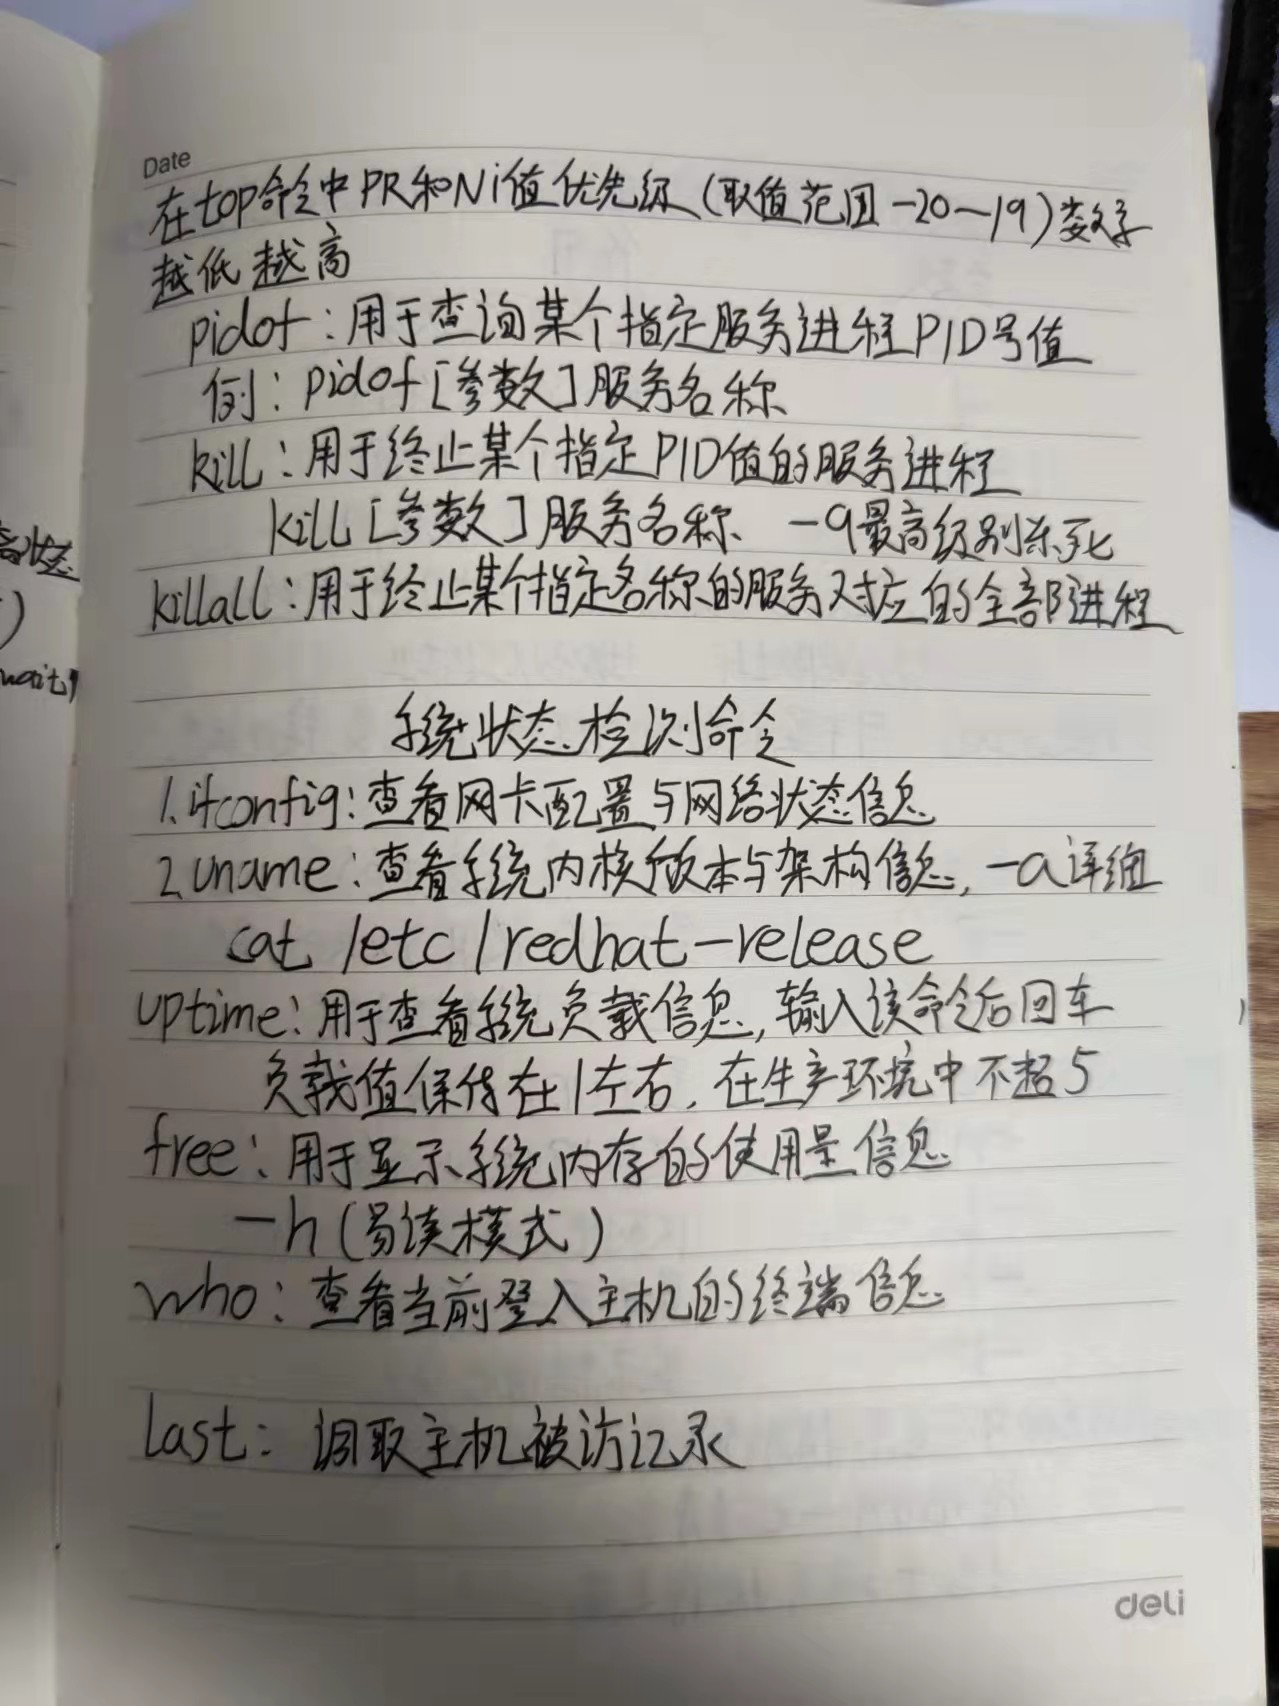 Date
在top命令中PR和Ni值优先级(取值范围-20~19)数字
越低越高
pidof:用于查询某个指定服务进程PID号值
例:pidof[参数]服务名称
kill:用于终止某个指定PID值的服务进程
kill[参数]服务名称 -9最高级别杀死
killall:用于终止某个指定名称的服务对应的全部进程
系统状态检测命令
1.ifconfig:查看网卡配置与网络状态信息
2.uname:查看系统内核版本与架构信息,-a详细
cat /etc/redhat-release
uptime:用于查看系统负载信息,输入该命令后回车
负载值保持在1左右,在生产环境中不超5
free:用于显示系统内存的使用量信息
-h(易读模式)
who:查看当前登入主机的终端信息
last:调取主机被访记录
deli